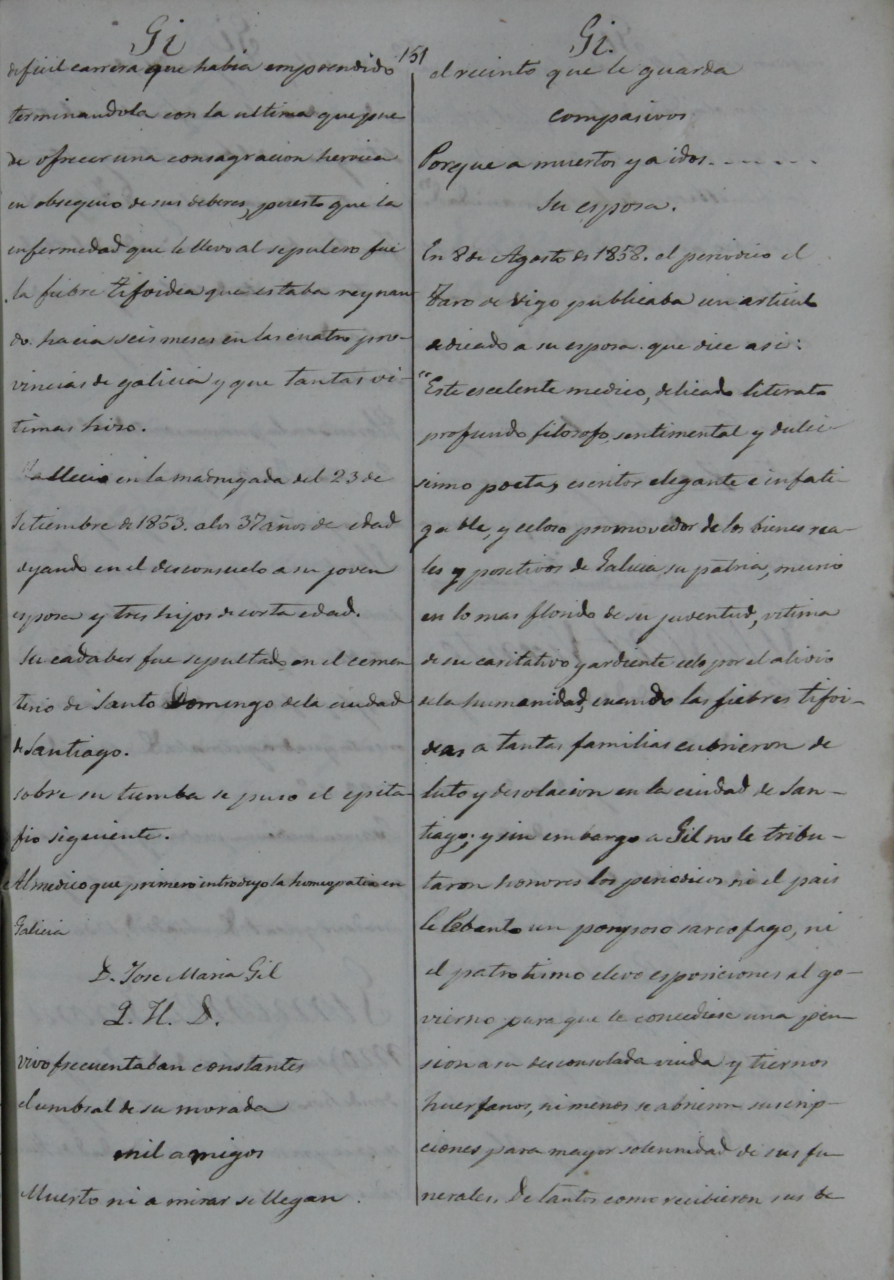 Gi
151
dificil carrera que habia emprendido
terminandola con la ultima que pue
de ofrecer una consagracion heroica
en obsequio de sus deberes, puesto que la
enfermedad que le llevo al sepulcro fue
la fiebre tifoidea que estaba reynan
do hacia seis meses en las cuatro pro-
vincias de galicia y que tantas vi-
timas hizo.
Fallecio en la madrugada del 23 de
Setiembre de 1853. a los 37 años de edad
dejando en el desconsuelo a su joven
esposa y tres hijos de corta edad.
Su cadaber fue sepultado en el cemen
terio de Santo Domingo de la ciudad
de Santiago.
sobre su tumba se puso el epita-
fio siguiente.
Al medico que primero introdujo la homeopatia en
Galicia
D. Jose Maria Gil
Q. H. D.
vivo frecuentaban constantes
el umbral de su morada
mil amigos
Muerto ni a mirar se llegan
Gi.
el recinto que le guarda
compasivos
Porque a muertos y a idos.......
Su esposa.
En 8 de Agosto de 1858. el periodico el
Faro de Vigo publicaba un articulo
adicado a su esposa. que dice asi:
"Este escelente medico, delicado literato
profundo filosofo, sentimental y dulci-
simo poeta, escritor elegante e infati-
gable, y celoso promovedor de los bienes rea-
les y positivos de Galicia su patria, murio
en lo mas florido de su juventud, vitima
de su caritativo y ardiente celo por el alivio
de la humanidad, cuando las fiebres tifoi-
deas a tantas familias cubrieron de
luto y desolacion en la ciudad de San-
tiago; y sin embargo a Gil no le tribu-
taron honores los periodicos ni el pais
le lebanto un pomposo sarcofago, ni
el patrotismo elevo esposiciones al go-
vierno para que le concediese una pen-
sion a su desconsolada viuda y tiernos
huerfanos, ni menos se abrieron suscrip-
ciones para mayor solemnidad de sus fu-
nerales. De tantos como recibieron sus be-